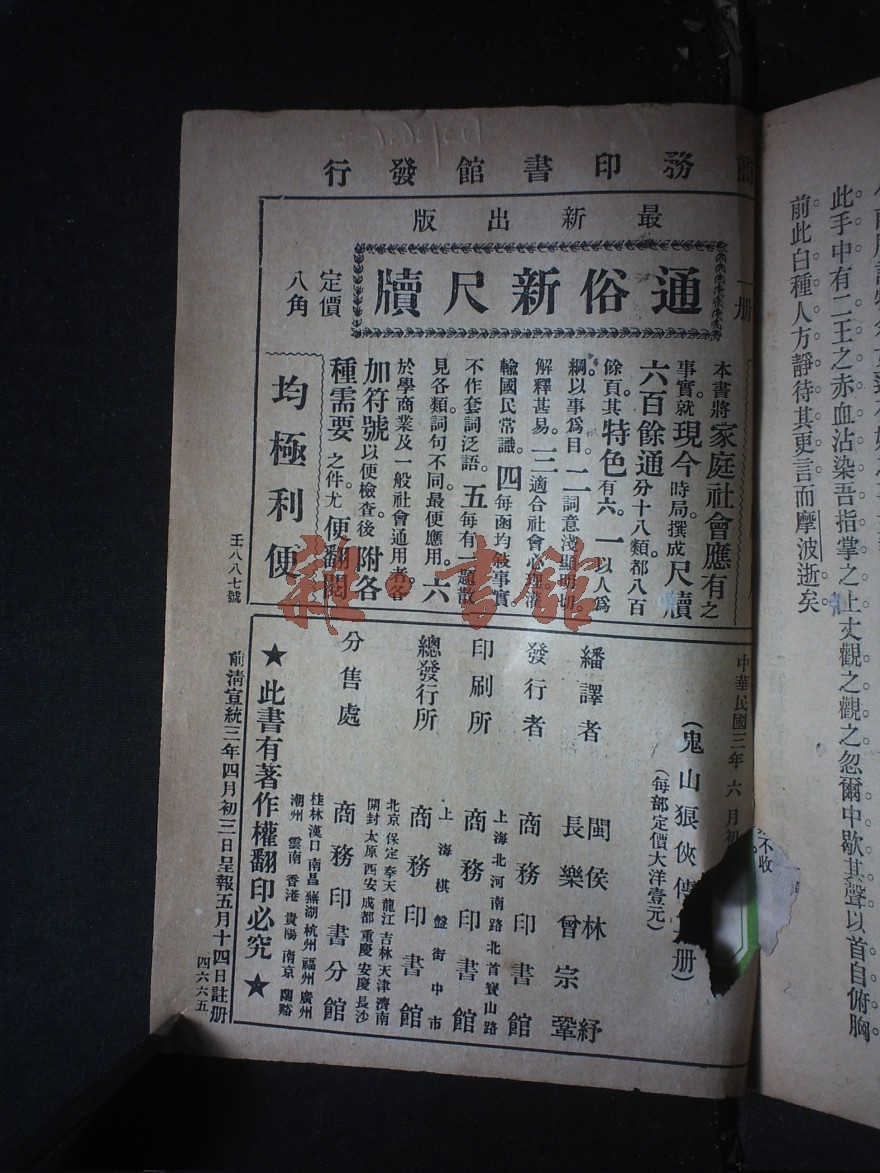 前此白種人方靜待其更言而摩波逝矣。
此手中有二王之赤血沾染吾指掌之上丈觀之觀之忽爾中歇其聲以首自俯胸
商務印書館發行
最新出版
通俗新尺牘
一册
定價
八角
本書將家庭社會應有之
事實就現今時局撰成尺牘
六百餘通分十八類都八百
餘頁其特色有六。一以人爲
綱以事爲目。二詞意淺顯明切。
解釋甚易。三適合社會心理灌
輸國民常識。四每函均敍事實
不作套詞泛語。五每有一題散
見各類詞句不同。最便應用。六
於學商業及一般社會通用者。各
加符號以便檢查後附各
種需要之件。尤便翻閱
均極利便
壬八八七號
中華民國三年六月初
(鬼山狼俠傳
册)
(每部定價大洋壹元)
繙譯者
閩侯林紓
長樂曾宗鞏
發行者
商務印書館
上海北河南路北首寶山路
印刷所
商務印書館
上海棋盤街中市
總發行所
商務印書館
北京保定奉天龍江吉林天津濟南
開封太原西安成都重慶安慶長沙
分售處
商務印書分館
桂林漢口南昌蕪湖杭州福州廣州
潮州雲南香港貴陽南京蘭谿
★此書有著作權翻印必究★
前淸宣統三年四月初三日呈報五月十四日註册
四六六五
不收
雜·書館